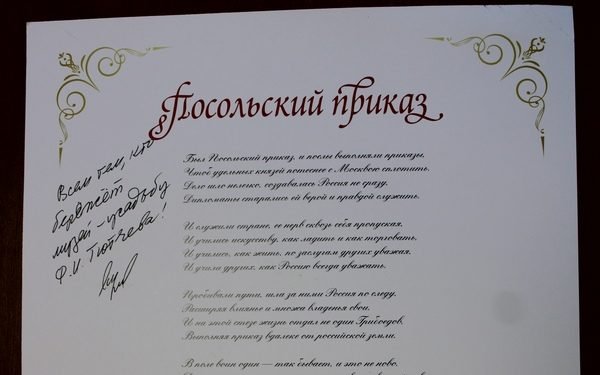 Посольский приказ
Всем тем, кто
бережёт
музей-усадьбу
Ф.И. Тютчева!
Был Посольский приказ, и послы выполняли приказы,
Чтоб удельных князей потеснее с Москвою сплотить.
Дело шло нелегко, создавалась Россия не сразу,
Дипломаты старались ей верой и правдой служить.
И служили стране, ее нерв сквозь себя пропуская,
И учились искусству, как ладить и как торговать,
И учились, как жить, по заслугам других уважая,
И учили других, как Россию всегда уважать.
Пробивали пути, шла за ними Россия по следу,
Расширяя влиянье и множа владенья свои.
И на этой стезе жизнь отдал не один Грибоедов,
Выполняя приказ вдалеке от российской земли.
В поле воин один — так бывает, и это не ново.